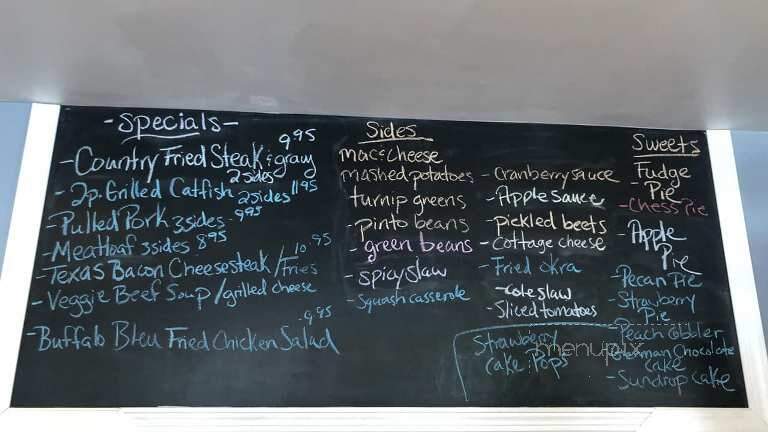 -Specials-
-Country Fried Steak & gravy 9.95
2 sides
-2p. Grilled Catfish 2 sides 11.95
-Pulled Pork 3 sides - 9.95
-Meatloaf 3 sides 8.95
-Texas Bacon Cheesesteak/Fries 10.95
-Veggie Beef Soup/grilled cheese
-9.95
-Buffalo Bleu Fried Chicken Salad
Sides
mac & cheese
mashed potatoes
turnip greens
-pinto beans
-green beans
-spicy slaw
-Squash casserole
-Cranberry sauce
-Apple sauce
-pickled beets
-Cottage cheese
-Fried okra
-cole slaw
-Sliced tomatoes
Strawberry
Cake Pops
Sweets
Fudge
-Pie
-Chess Pie
-Apple
Pie
-Pecan Pie
-Strawberry
Pie
-Peach Cobbler
-German Chocolate
cake
-Sundrop cake
menupix